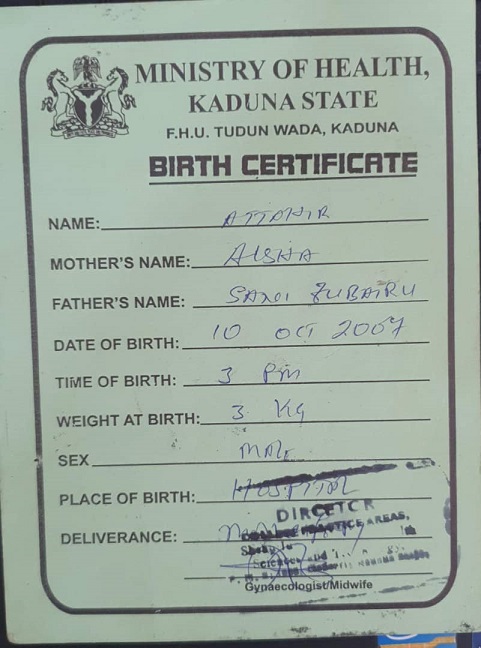 MINISTRY OF HEALTH,
KADUNA STATE
F.H.U. TUDUN WADA, KADUNA
BIRTH CERTIFICATE
NAME: ATTAHIR
MOTHER'S NAME: AISHA
FATHER'S NAME: SANI ZUBAIRU
DATE OF BIRTH: 10 OCT 2007
TIME OF BIRTH: 3 PM
WEIGHT AT BIRTH: 3 Kg
SEX MALE
PLACE OF BIRTH: HOSPITAL
DIRCETCR
PRACTICE AREAS,
DELIVERANCE:
Science and
Gynaecologist/Midwife